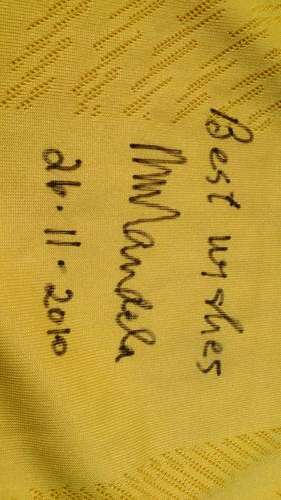 Best wishes
Mandela
26.11.2010